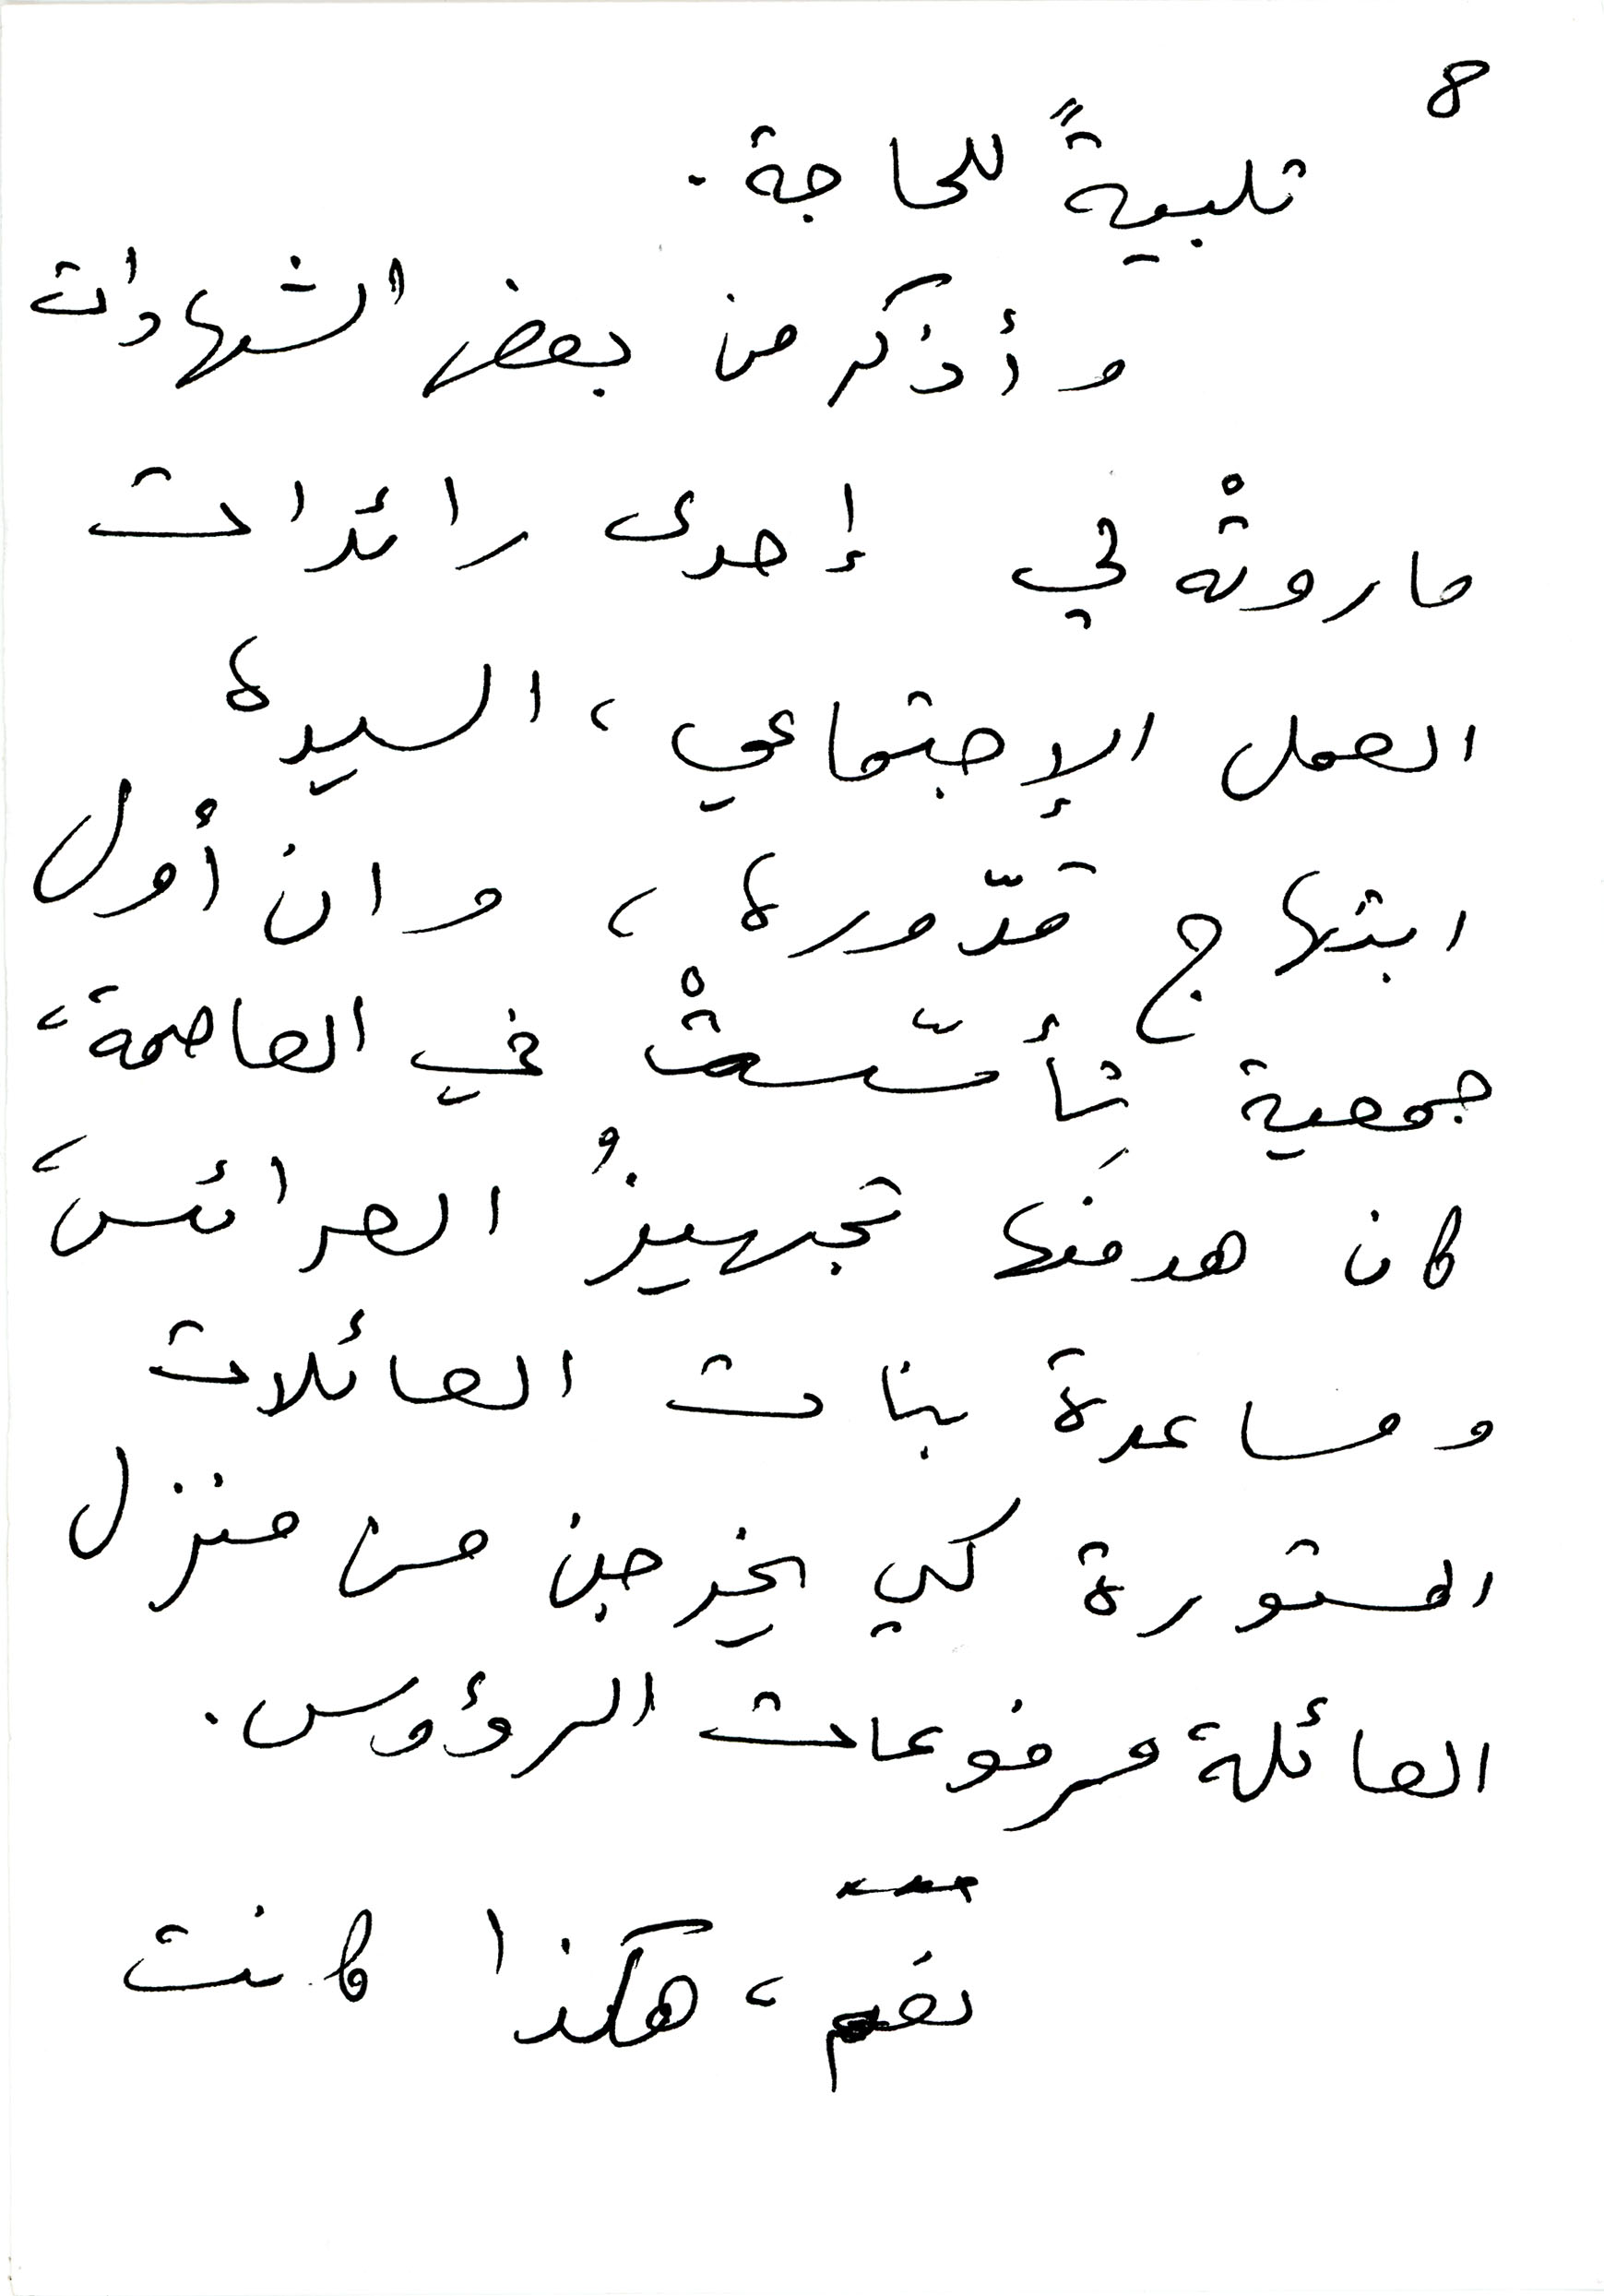 8
تلبيةً للحاجة.
وأذكر من بعض الشهادات
ما روتْه لي إحدى رائدات
العمل الإجتماعي، السيدة
ابتهاج قدّورة، وان أول
جمعية تأسّستْ في العاصمة،
كان هدفَها تجهيزُ العرائس،
ومساعدة بنات العائلات
المستورة كي يخرجن من منزل
العائلة مرفوعات الرؤوس.
نعم، هكذا كانت